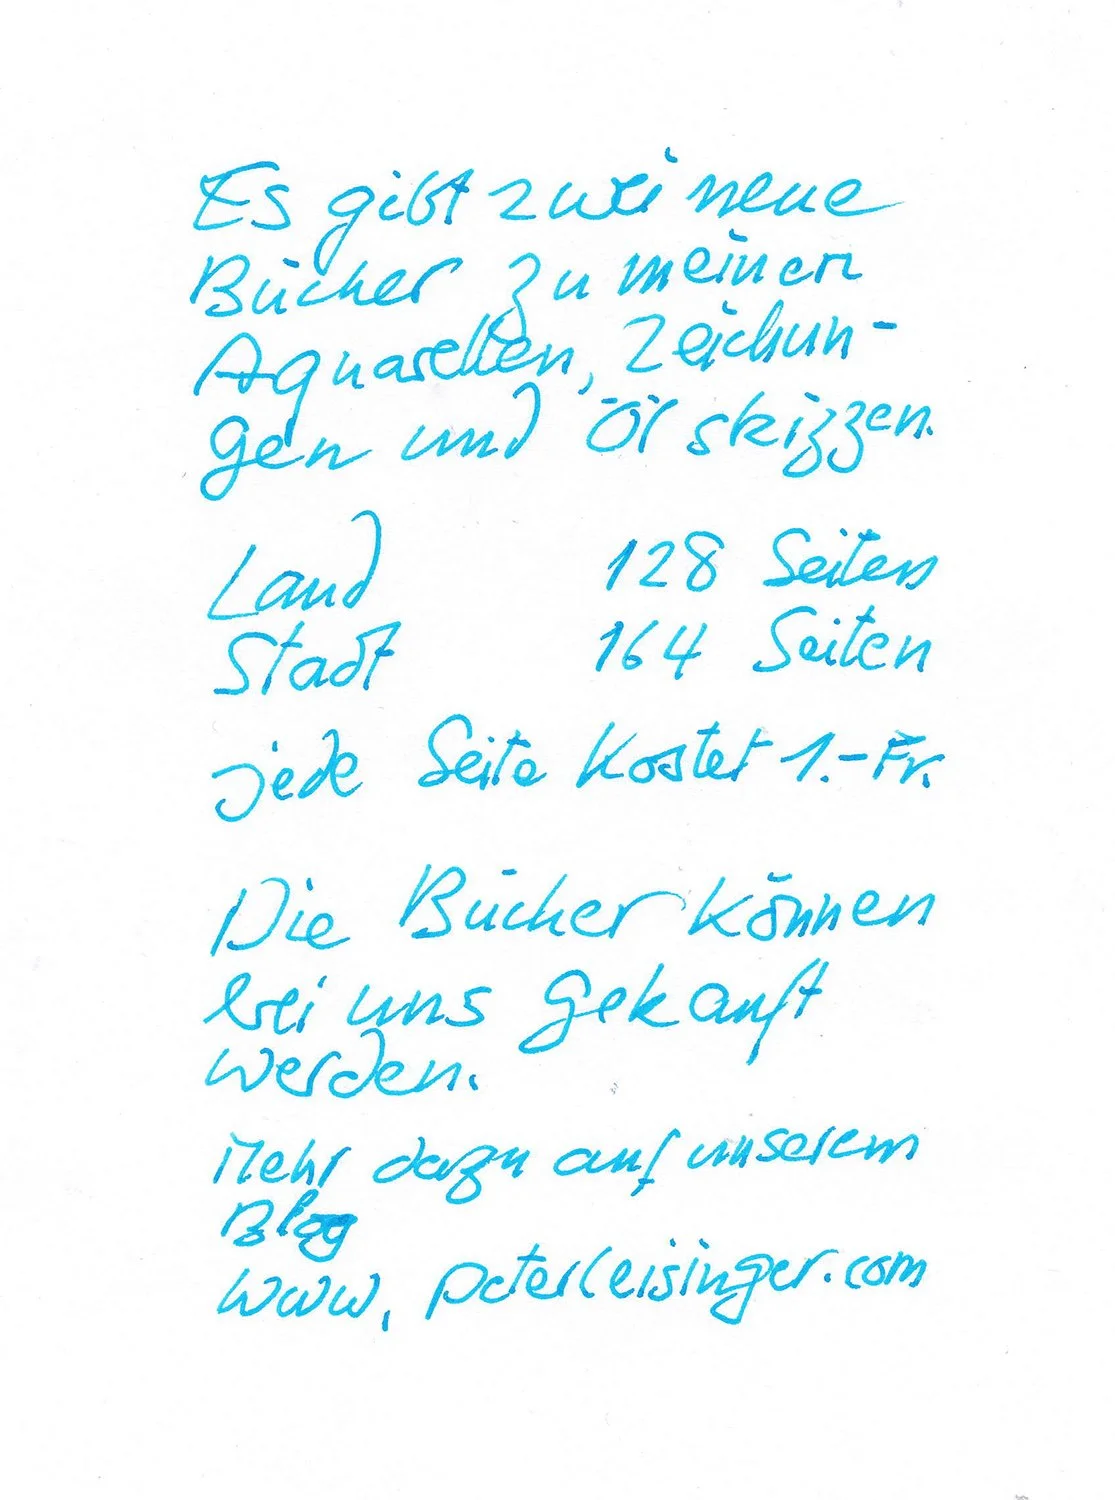 Es gibt zwei neue
Bücher zu meinen
Aquarellen, Zeichun-
gen und Öl skizzen.
Land 128 Seiten
Stadt 164 Seiten
jede Seite kostet 1.- Fr.
Die Bücher können
bei uns gekauft
werden.
Mehr dazu auf unserem
Blog
www, peterleisinger.com